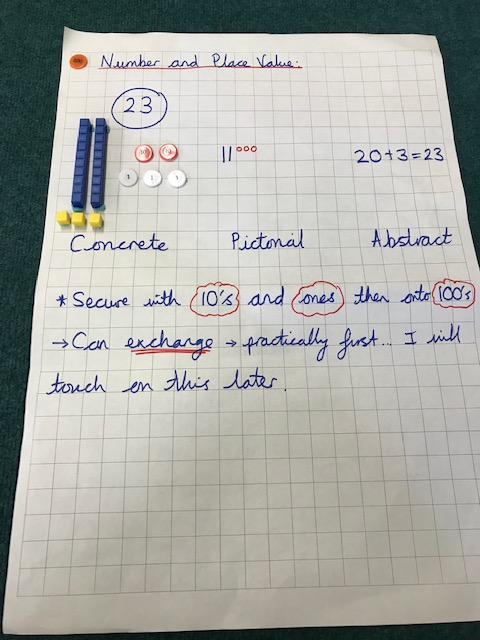 Number and Place Value:
23
10 10
1 1 1
20+3=23
Concrete Pictorial Abstract
* Secure with 10's and ones then onto 100's
→ Can exchange → practically first... I will
touch on this later.